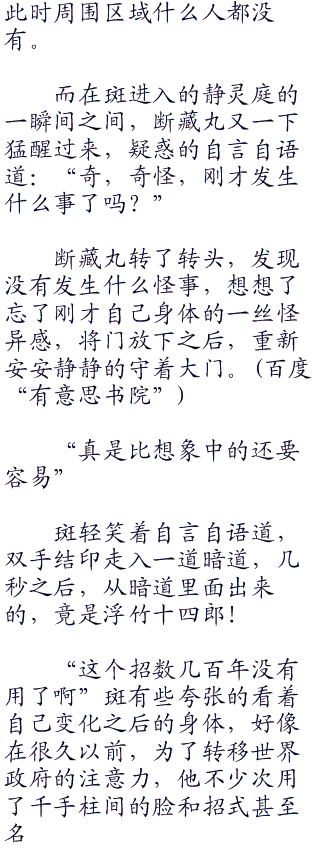 此时周围区域什么人都没
有。
而在斑进入的静灵庭的
一瞬间之间，断藏丸又一下
猛醒过来，疑惑的自言自语
道：“奇，奇怪，刚才发生
什么事了吗？”
断藏丸转了转头，发现
没有发生什么怪事，想想了
忘了刚才自己身体的一丝怪
异感，将门放下之后，重新
安安静静的守着大门。(百度
“有意思书院”)
“真是比想象中的还要
容易”
斑轻笑着自言自语道，
双手结印走入一道暗道，几
秒之后，从暗道里面出来
的，竟是浮竹十四郎！
“这个招数几百年没有
用了啊”斑有些夸张的看着
自己变化之后的身体，好像
在很久以前，为了转移世界
政府的注意力，他不少次用
了千手柱间的脸和招式甚至
名